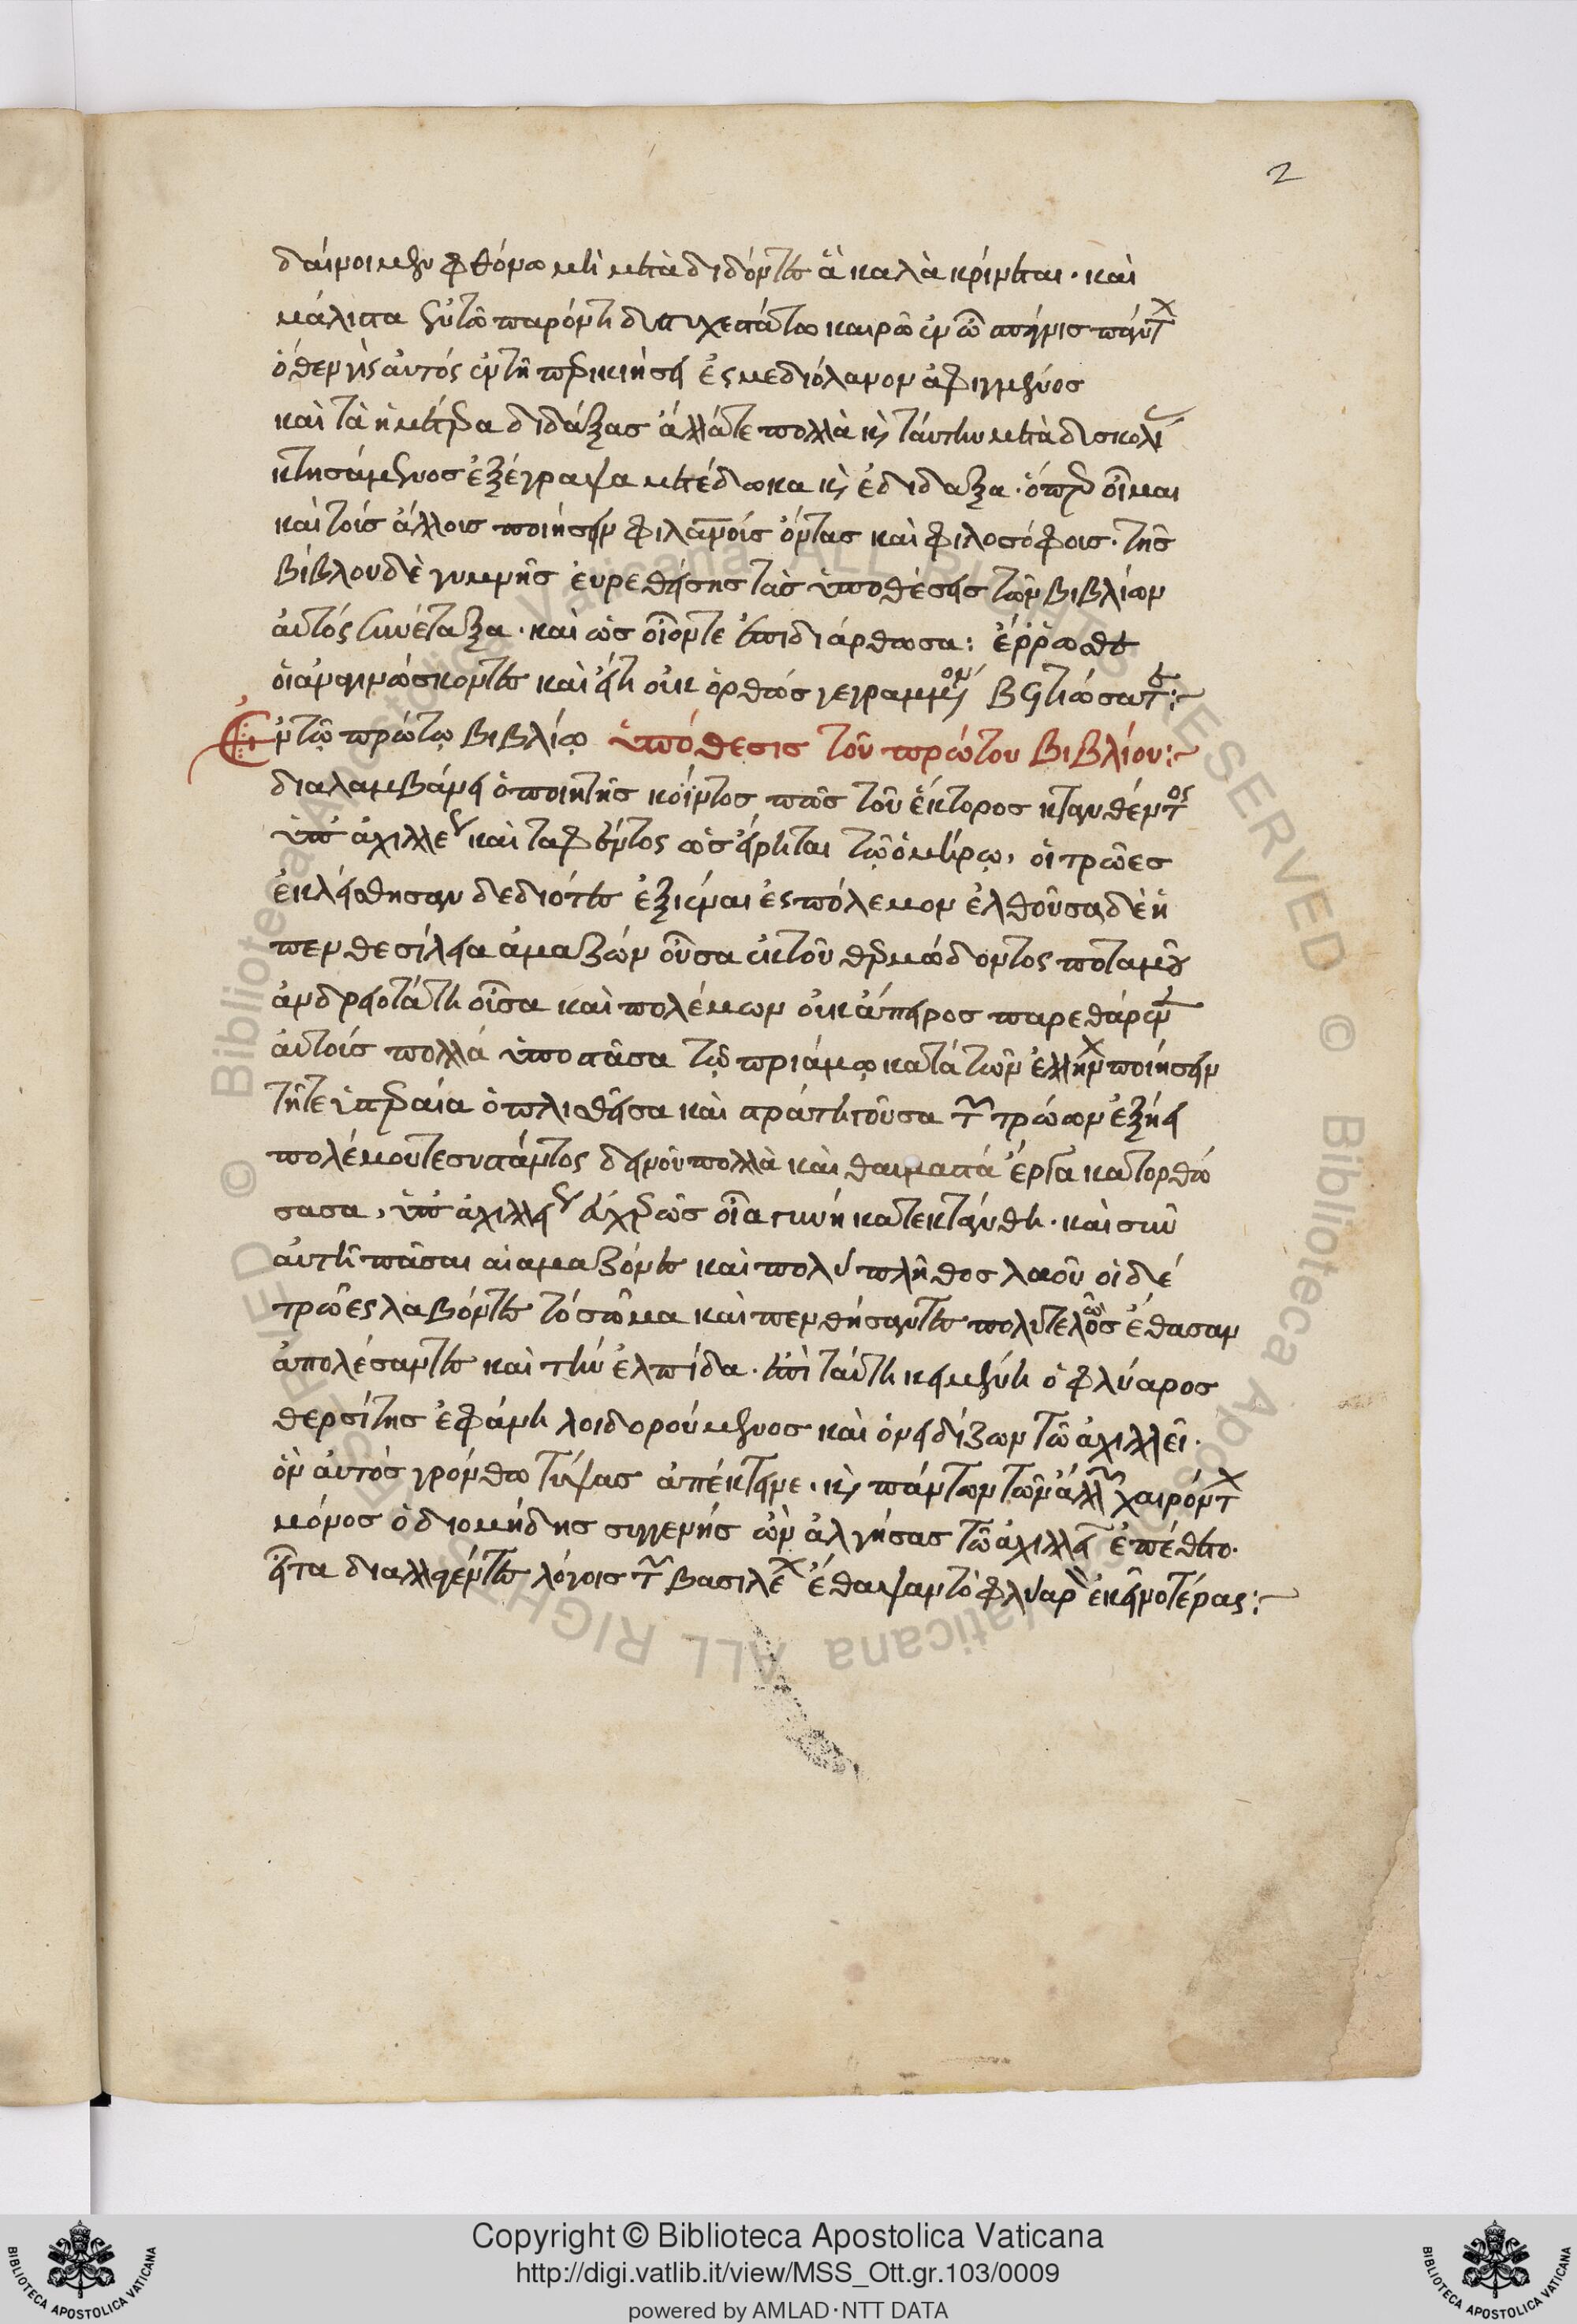 2
δαίμοιμεν φθόνω μὴ μεταδιδόντες ἃ καλὰ κρίνεται· καὶ
μάλιστα ἐν τῶ παρόντι δυστυχεστάτω καιρῶ ἐν ὧ σπάνις πάντων
ὅθεν γὶς αὐτός ἐν τῆ ἐς μεδιόλανον ἀφιγμένος
καὶ τὰ ἡμέτερα διδάξας ἄλλάτε πολλὰ καὶ ταύτην μετὰ δισκολί
κτησάμενος ἐξέγραψα μετέδωκα καὶ ἐδίδαξα· ὅπερ οἶμαι
καὶ τοῖς ἄλλοις ποιήσειν φιλανοῖς ὄντας καὶ φιλοσόφοις· τῆς
βίβλου δὲ γυμνῆς εὑρεθείσης τὰς ὑποθέσεις τῶν βιβλίων
αὐτός συνέταξα· καὶ ὡς οἷόντε ἐπιδιάρθωσα: ἔρρωσθε
οἱ ἀναγινώσκοντες καὶ εἴτι οὐκ ὀρθῶς γεγραμμένον βελτιώσατε:~
Ἐν τῶ πρώτω βιβλίω ὑπόθεσις τοῦ πρώτου βιβλίου:~
διαλαμβάνει ὁ ποιητὴς κόϊντος πῶς τοῦ ἕκτορος κτανθέντος
ὑπ' ἀχιλλέως καὶ ταφέντος ὡς εἴρηται τῶ ὁμήρω, οἱ τρῶες
ἐκλείσθησαν δεδιότες ἐξιέναι ἐς πόλεμον ἐλθοῦσα δὲ ἡ
πενθεσίλεια ἀμαζών οὖσα ἐκ τοῦ θερμώδοντος ποταμοῦ
ἀνδρειοτάτη οὖσα καὶ πολέμων οὐκ ἄπειρος παρεθάρσυνεν
αὐτοῖς πολλά ὑποστᾶσα τῶ πριάμω κατά τῶν ἑλλήνων ποιήσειν
τῆτε ὑστεραία ὁπλισθεῖσα καὶ πρατηγοῦσα τῶν τρώων ἐξήει
πολέμουτε συστάντος δεινοῦ πολλὰ καὶ θαυμαστά ἔργα κατορθώ
σασα, ὑπ' ἀχιλλέως εὐχερῶς οἷα γυνή κατεκτάνθη· καὶ σὺν
αὐτῆ πᾶσαι αἱ αμαζόνες καὶ πολὺ πλῆθος λαοῦ οἱ δέ
τρῶες λαβόντες τό σῶμα καὶ πενθήσαντες πολυτελῶς ἔθασαν
ἀπολέσαντες καὶ τὴν ἐλπίδα· ἐπὶ ταύτη κειμένη ὁ φλύαρος
θερσίτης ἐφάνη λοιδορούμενος καὶ ὀνειδίζων τῶ ἀχιλλεῖ·
ὃν αὐτὸς γρόνθω τύψας ἀπέκτεινε· καὶ πάντων τῶν ἄλλων χαιρόντων
μόνος ὁ διομήδης συγγενής ὢν ἀλγήσας τῶ ἀχιλλεῖ ἐπέθετο·
εἶτα διαλλαγέντες λόγοις τῶν βασιλέων ἔθαψαν τὸ φλυαρὸν ἐκεῖνον
Copyright © Biblioteca Apostolica Vaticana
http://digi.vatlib.it/view/MSS_Ott.gr.103/0009
powered by AMLAD·NTT DATA